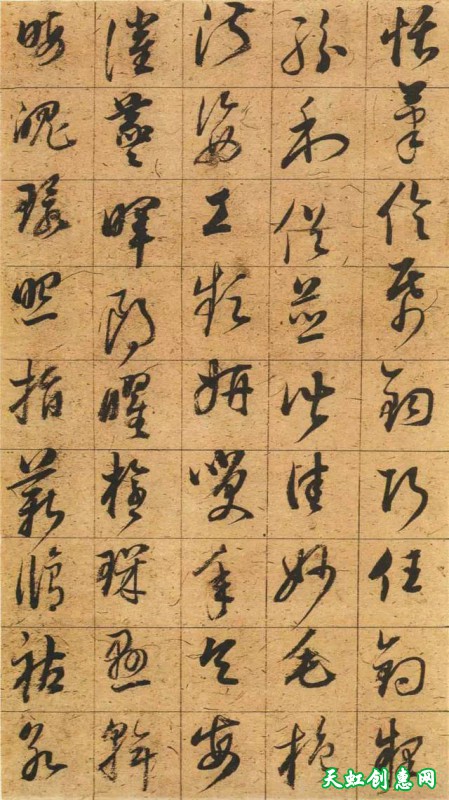 恬筆倫紙鈞巧任釣釋
紛利俗並皆佳妙毛施
淑姿工顰妍笑年矢每
催羲暉朗曜璇璣懸斡
晦魄環照指薪修祜永
天虹创惠网